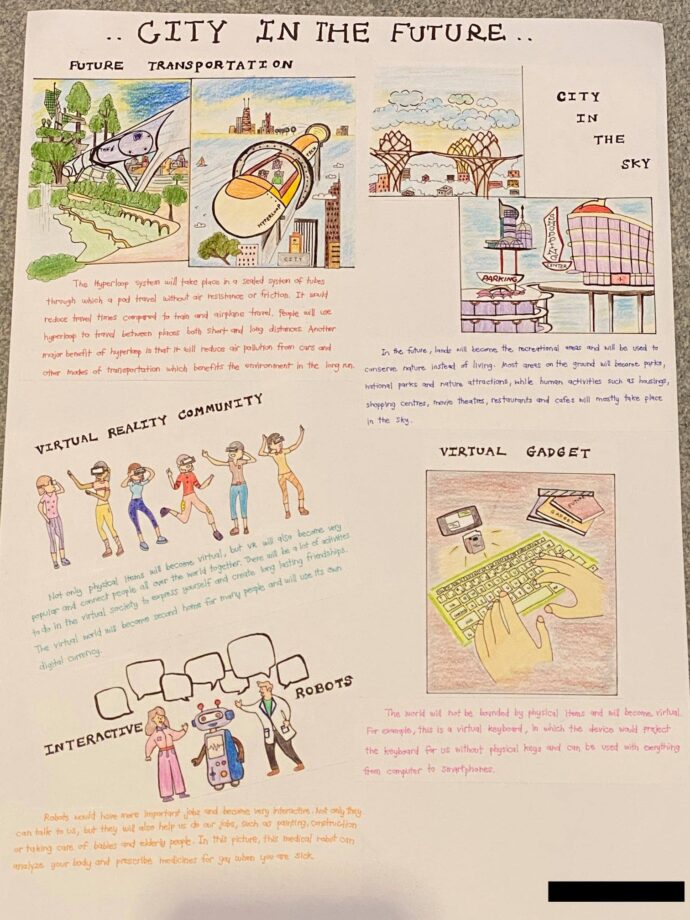 .. CITY IN THE FUTURE ..
FUTURE TRANSPORTATION
HYPERLOOP
CITY
The Hyperloop system will take place in a sealed system of tubes
through which a pod travel without air resistance or friction. It would
reduce travel times compared to train and airplane travel. People will use
hyperloop to travel between places both short and long distances. Another
major benefit of hyperloop is that it will reduce air pollution from cars and
other modes of transportation which benefits the environment in the long run.
CITY
IN
THE
SKY
SHOPPING
CENTER
PARKING
In the future, lands will become the recreational areas and will be used to
conserve nature instead of living. Most areas on the ground will become parks,
national parks and nature attractions, while human activities such as housings,
shopping centres, movie theatres, restaurants and cafes will mostly take place
in the sky.
VIRTUAL REALITY COMMUNITY
Not only physical items will become virtual, but VR will also become very
popular and connect people all over the world together. There will be a lot of activities
to do in the virtual society to express yourself and create long lasting friendships.
The virtual world will become second home for many people and will use its own
digital currency.
VIRTUAL GADGET
GADGET
The world will not be bounded by physical items and will become virtual.
For example, this is a virtual keyboard, in which the device would project
the keyboard for us without physical keys and can be used with everything
from computer to smartphones.
INTERACTIVE ROBOTS
Robots would have more important jobs and become very interactive. Not only they
can talk to us, but they will also help us do our jobs, such as painting, construction
or taking care of babies and elderly people. In this picture, this medical robot can
analyze your body and prescribe medicines for you when you are sick.